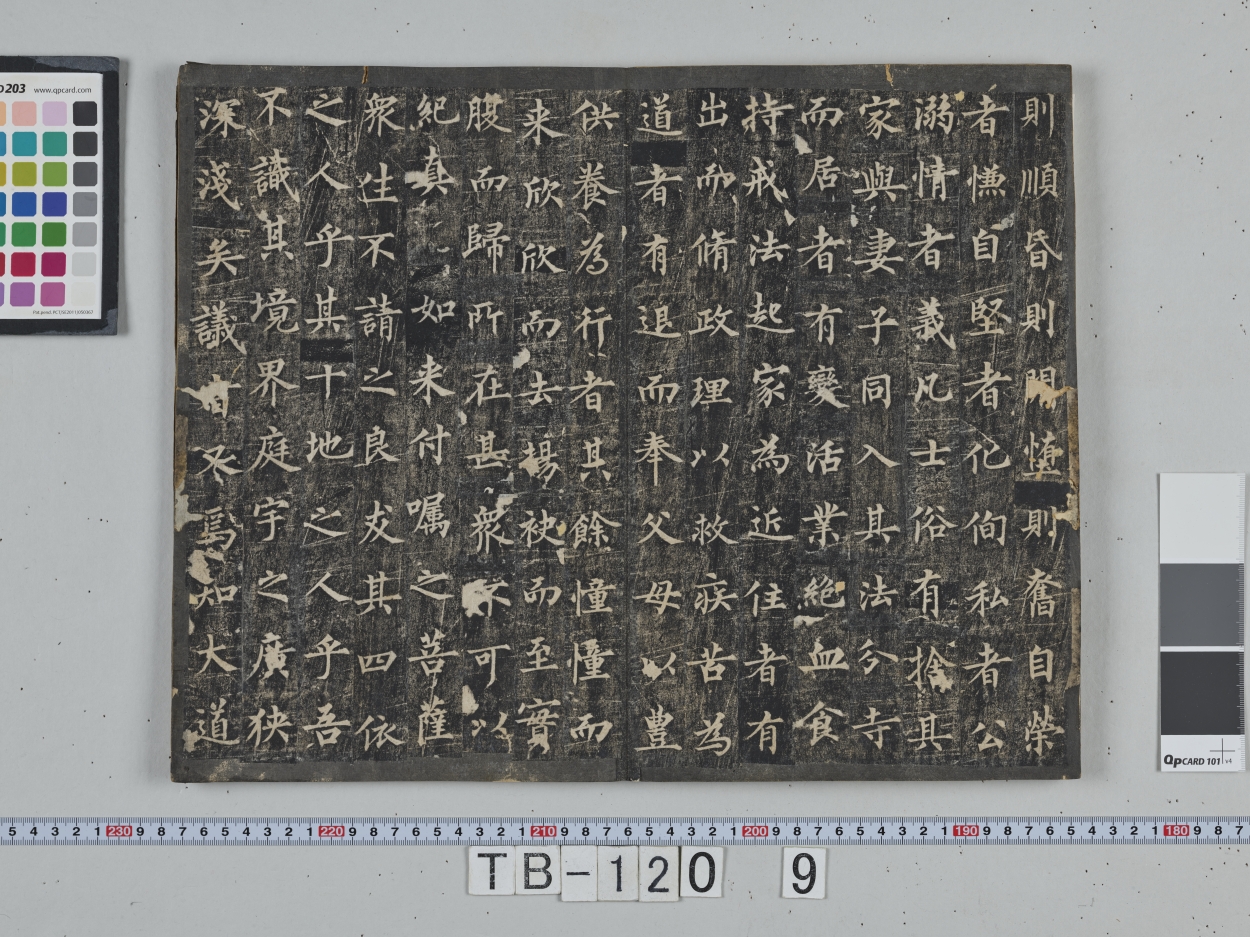 則順昏則開墮則奮自榮
者慊自堅者化徇私者公
溺情者義凡士俗有捨其
家與妻子同入其法分寺
而居者有變活業絕血食
持戒法起家為近住者有
出而脩政理以救疾苦為
道者有退而奉父母以豊
供養為行者其餘憧憧而
来欣欣而去揚袂而至實
腹而歸所在甚衆不可以
紀真如来付嘱之菩薩
衆生不請之良友其四依
之人乎其十地之人乎吾
不識其境界庭宇之廣狭
深淺矣議者又焉知大道
203 www.qpcard.com
QPCARD 101 v4
5 4 3 2 1 230 9 8 7 6 5 4 3 2 1 220 9 8 7 6 5 4 3 2 1 210 9 8 7 6 5 4 3 2 1 200 9 8 7 6 5 4 3 2 1 190 9 8 7 6 5 4 3 2 1 180 9 8 7
TB-120 9